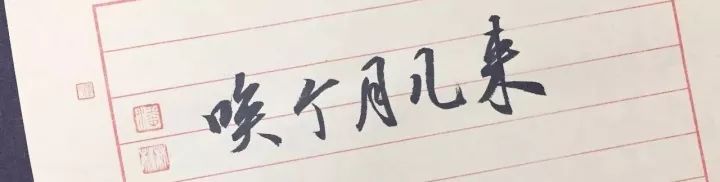 唉个月几来